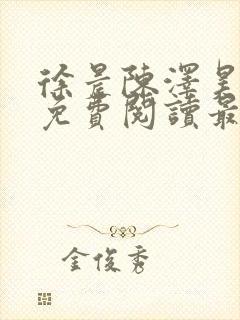 徐景陳澤昊
免費閱讀最
金俊秀